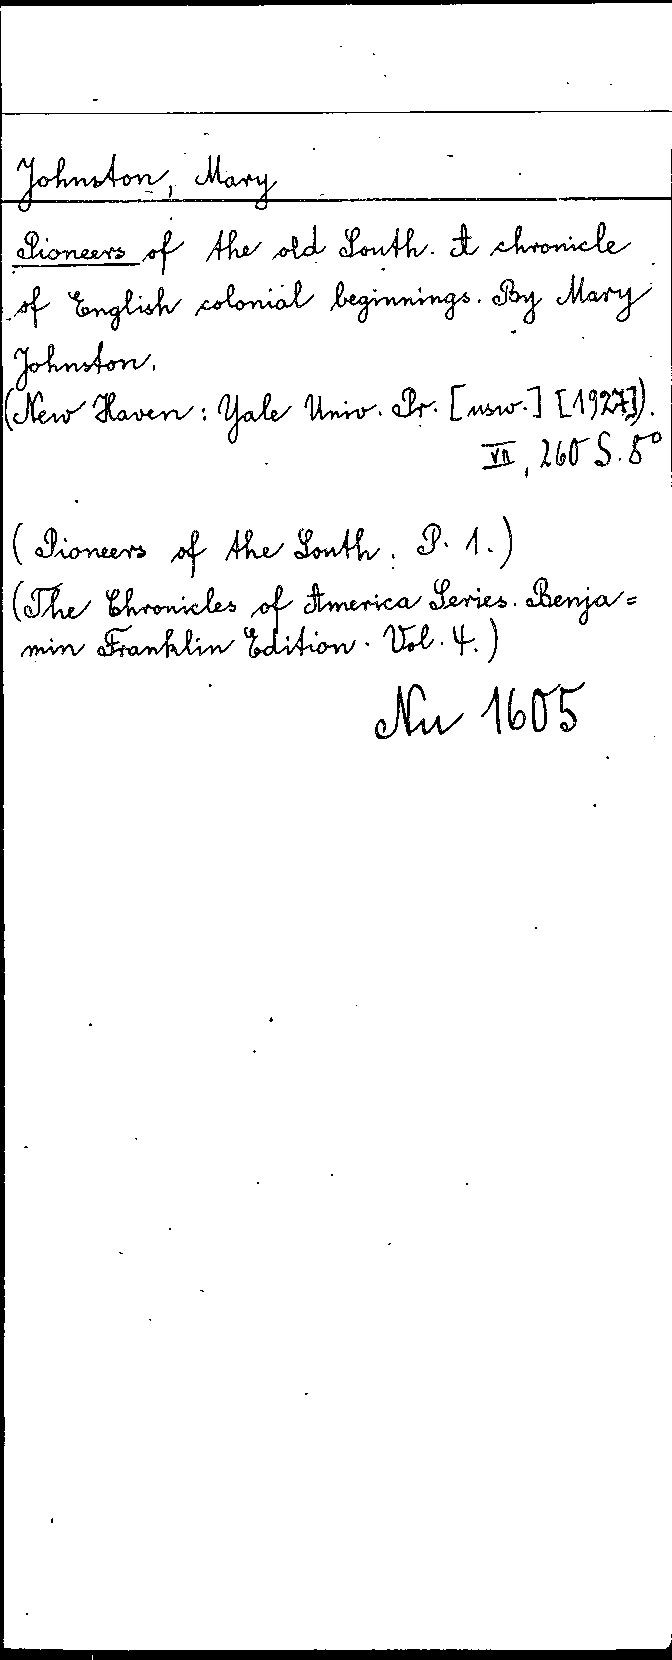 Johnston, Mary
Pioneers of the old South. A chronicle
of English colonial beginnings. By Mary
Johnston.
(New Haven: Yale Univ. Pr. [usw.] [1927]).
VII, 260 S. 8°
(Pioneers of the South. P. 1.)
(The Chronicles of America Series. Benja=
min Franklin Edition. Vol. 4.)
Nu 1605